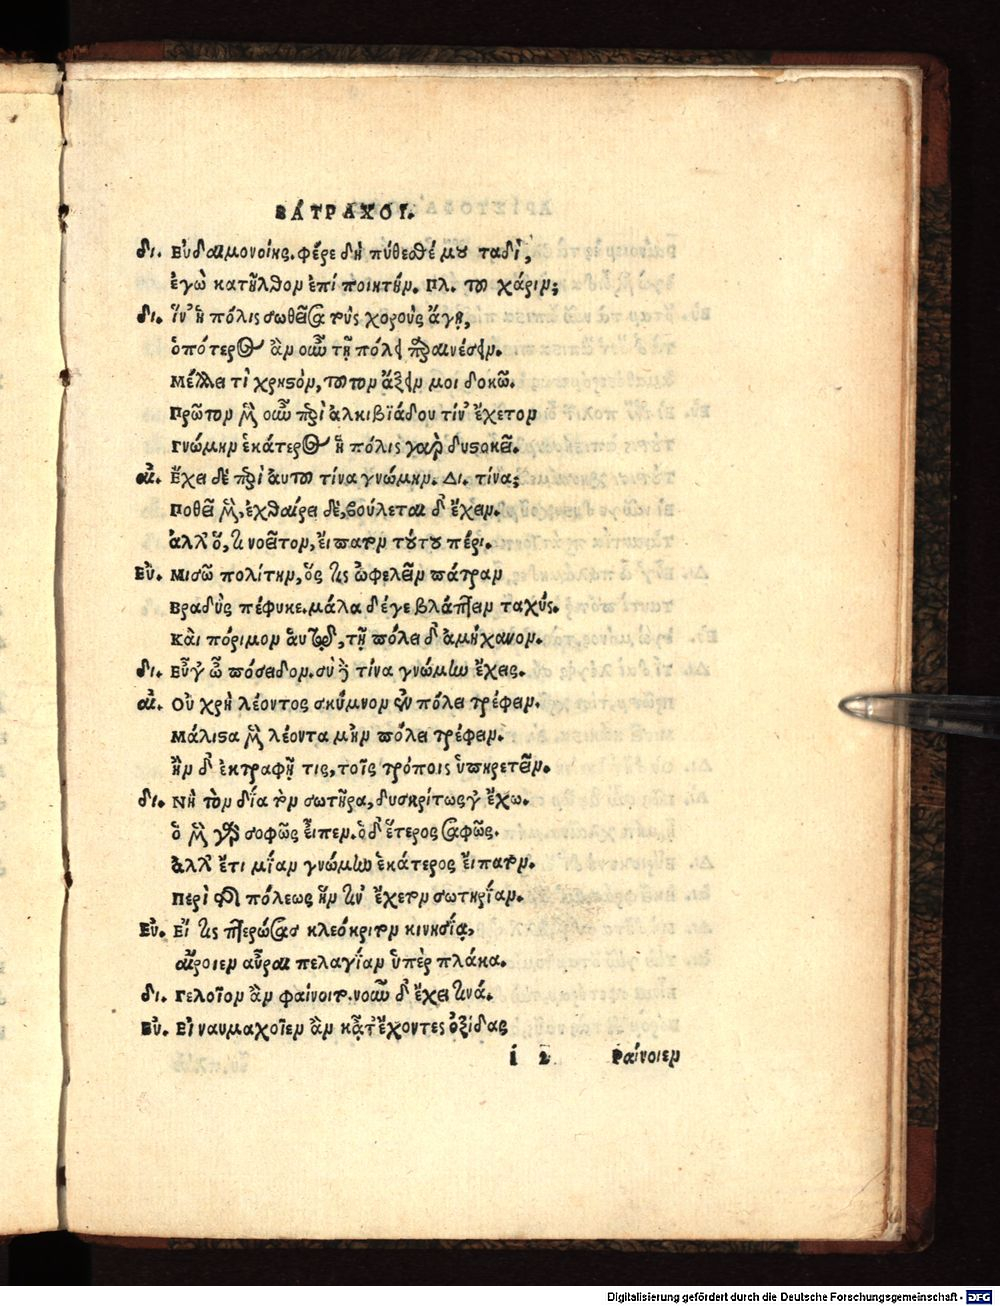 ΒΆΤΡΑΧΟΙ.
δι. Εὐδαιμονοίης. φέρε δὴ πύθεσθέ μου ταδὶ,
ἐγὼ κατῆλθον ἐπὶ ποιητήν. Πλ. τοῦ χάριν;
δι. ἵν' ἡ πόλις σωθεῖσα τοὺς χοροὺς ἄγῃ,
ὁπότερος ἂν οὖν τῇ πόλει παραινέσειν.
Μέλλει τὶ χρηστὸν, τοῦτον ἄξειν μοι δοκῶ.
Πρῶτον μὲν οὖν περὶ ἀλκιβϊάδου τίν' ἔχετον
Γνώμην ἑκάτερος ἡ πόλις γὰρ δυστοκεῖ.
αἰ. Ἔχει δὲ περὶ ἀυτοῦ τίνα γνώμην. Δι. τίνα;
Ποθεῖ μὲν, ἐχθαίρει δὲ, βούλεται δ' ἔχειν.
ἀλλ' ὅ, τι νοεῖτον, ἔιπατον τούτου πέρι.
Εὐ. Μισῶ πολίτην, ὅς τις ὠφελεῖν πάτραν
Βραδὺς πέφυκε. μάλα δέγε βλάπτειν ταχύς.
Κὰι πόριμον ἁυτῷ, τῇ πόλει δ' ἀμήχανον.
δι. Εὖγ' ὦ πόσειδον. σὺ δὲ τίνα γνώμην ἔχεις.
αἰ. Οὐ χρὴ λέοντος σκύμνον ἐν πόλει τρέφειν.
Μάλιστα μὲν λέοντα μὴν πόλει τρέφειν.
ἢν δ' ἐκτραφῇ τις, τοῖς τρόποις ὑπηρετεῖν.
δι. Νὴ τὸν δία τὸν σωτῆρα, δυσκρίτως γ' ἔχω.
ὁ μὲν γὰρ σοφῶς ἔιπεν. ὁ δ' ἕτερος σαφῶς.
ἀλλ' ἔτι μΐαν γνώμην ἑκάτερος ἔιπατον.
Περὶ τῆς πόλεως ἥν τιν' ἔχετον σωτηρΐαν.
Εὐ. Εἴ τις πτερώσας κλεόκριτον κινησΐᾳ,
αἴροιεν αὖραι πελαγΐαν ὑπὲρ πλάκα.
δι. Γελοῖον ἂν φαίνοιτο. νοῦν δ' ἔχει τινά.
Εὐ. Εἰ ναυμαχοῖεν ἂν κᾆτ' ἔχοντες ὀξίδας
i 2 Ραίνοιεν
Digitalisierung gefördert durch die Deutsche Forschungsgemeinschaft - DFG